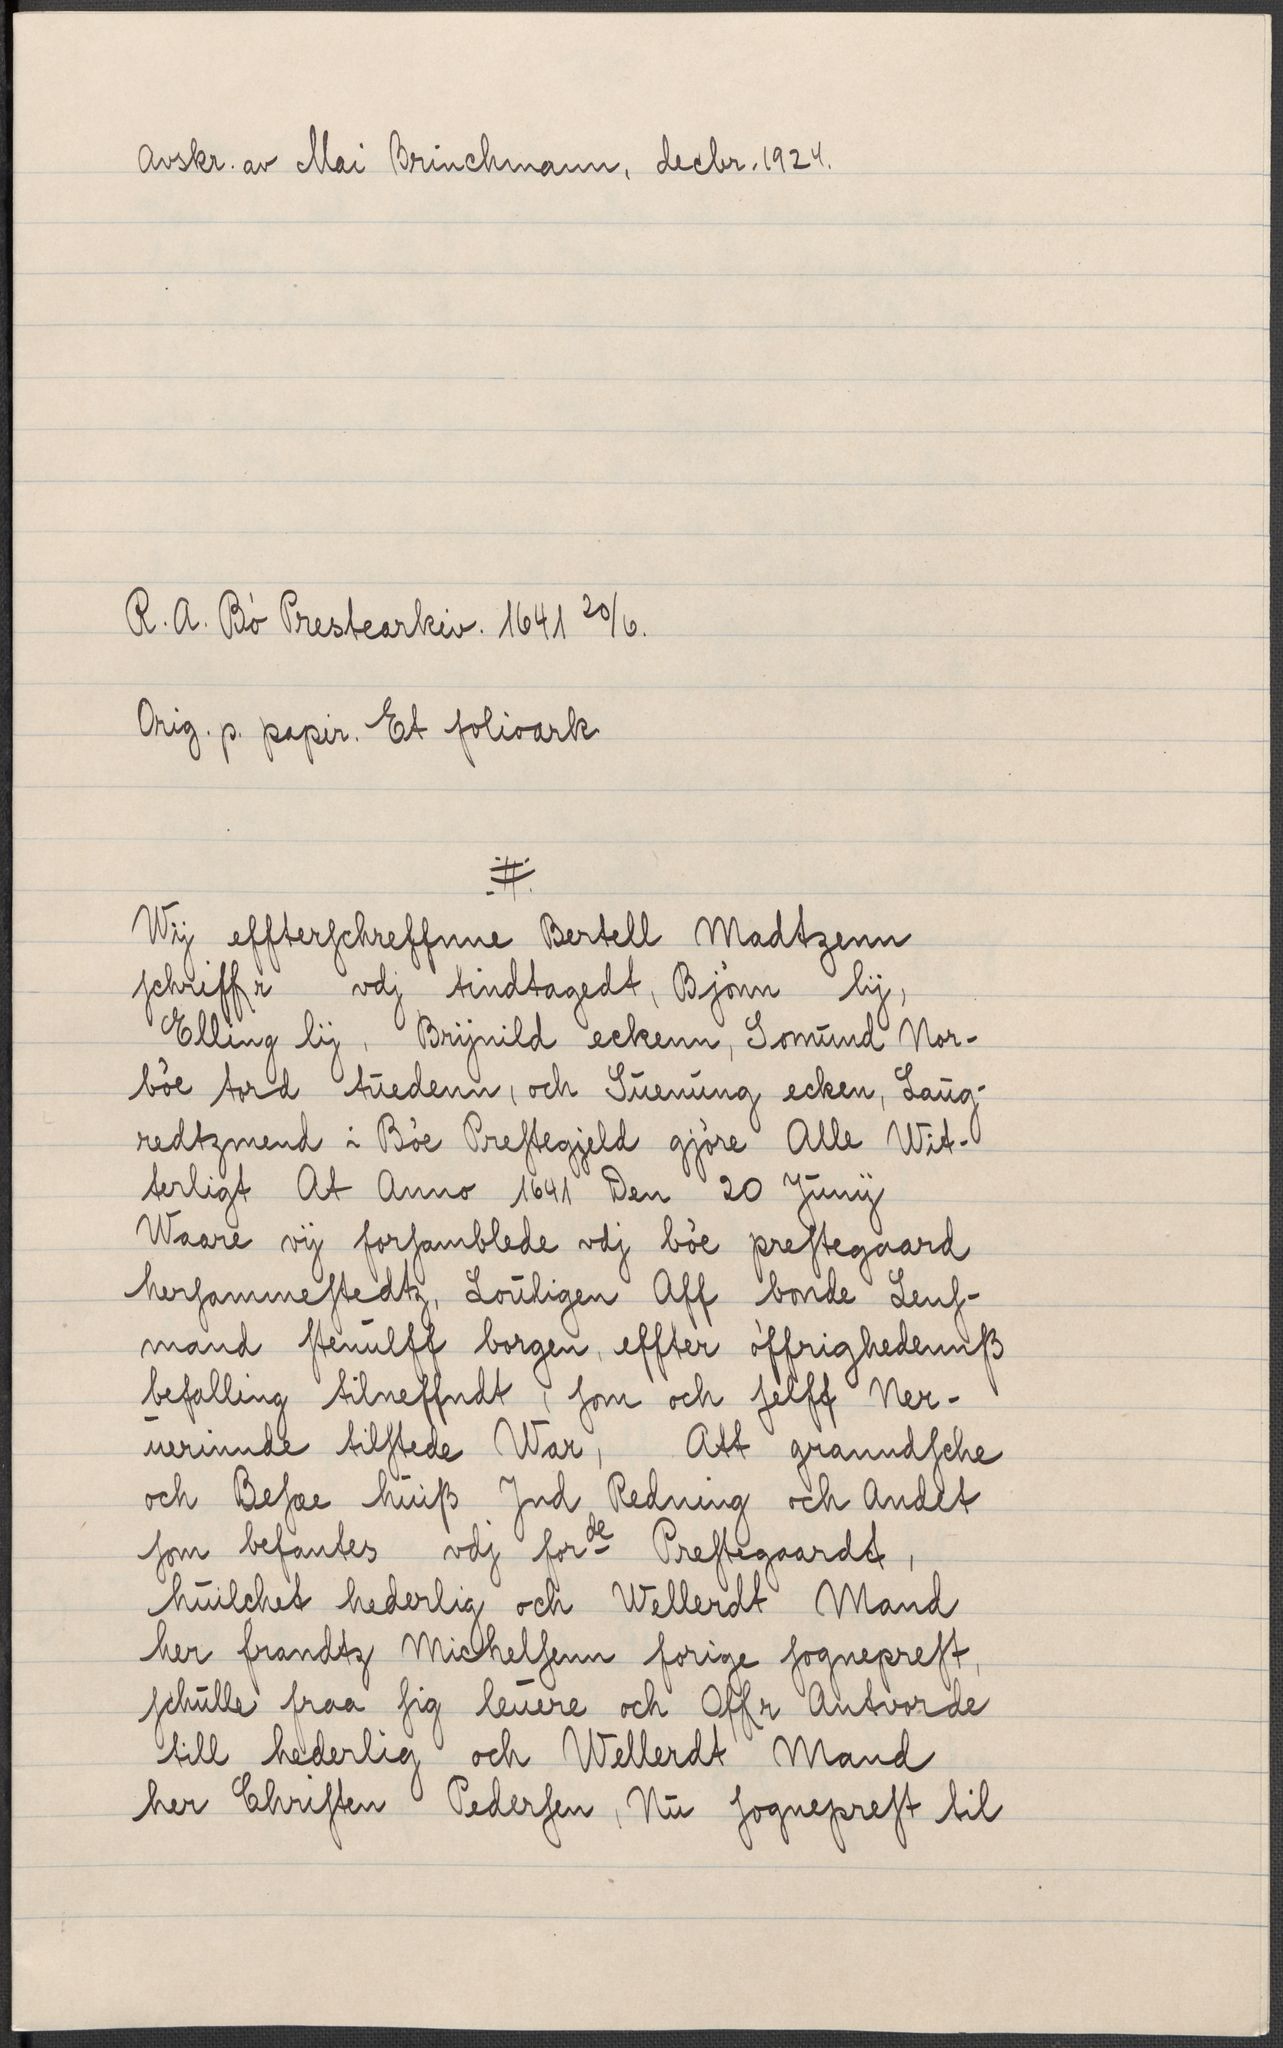 Avskr. av Mai Brinchmann, decbr. 1924.
R. A. Bø Prestearkiv. 1641 20/6.
Orig. p. papir. Et folioark
Wij effterschreffnne Bertell Madtzenn
schriffr vdj tindtagedt, Bjönn lij,
Elling lij, Brijnild eckenn, Somund Nor-
böe tord tuedenn, och Suenung ecken, Laug-
redtzmend i Böe Prestegjeld gjöre Alle Wit-
terligt At Anno 1641 Den 20 Junij
Waare vij forsamblede vdj böe prestegaard
hersammestedtz, Louligen Aff bonde Lens-
mand stenulff borgen, effter öffrighedennß
befalling tilneffndt, som och selff Ner-
uerinnde tilstede War, Att granndsche
och Besee huiß Jnd Redning och Andet
som befantes vdj forde Prestegaardt,
huilchet hederlig och Wellerdt Mand
her frandtz Michelsenn forige sogneprest,
schulle fraa sig leuere och Offr Antvorde
till hederlig och Wellerdt Mand
her Christen Pedersen, Nu sogneprest til